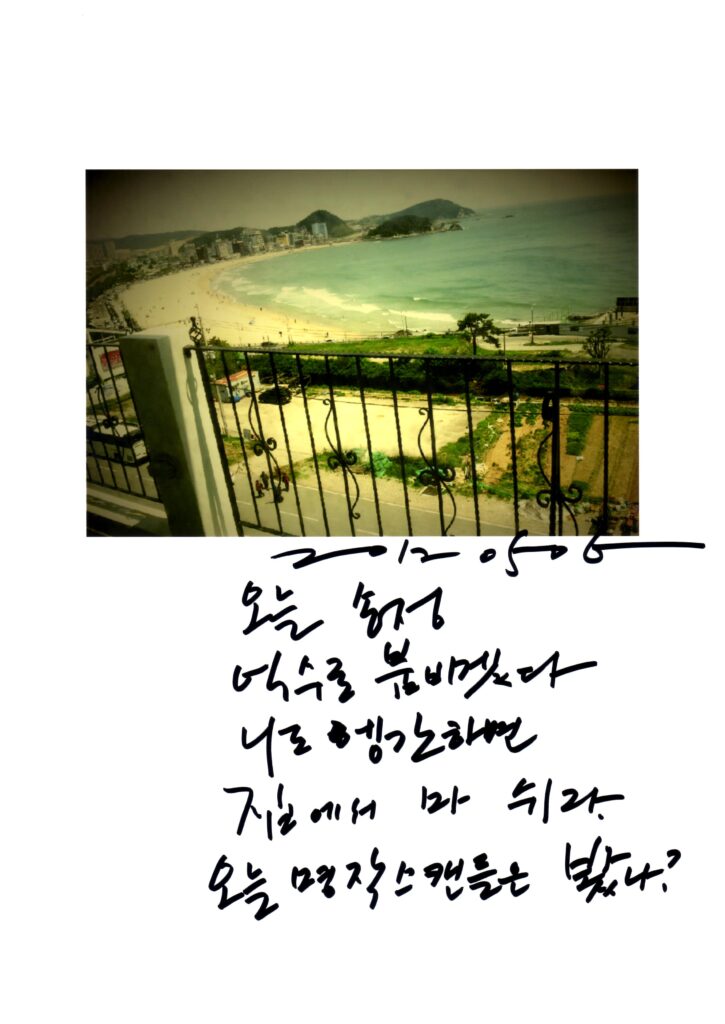 2012 05 06
오늘 송정
억수로 붐비겠다
니도 엥간하면
집에서 마 쉬라.
오늘 명작스캔들은 봤나?